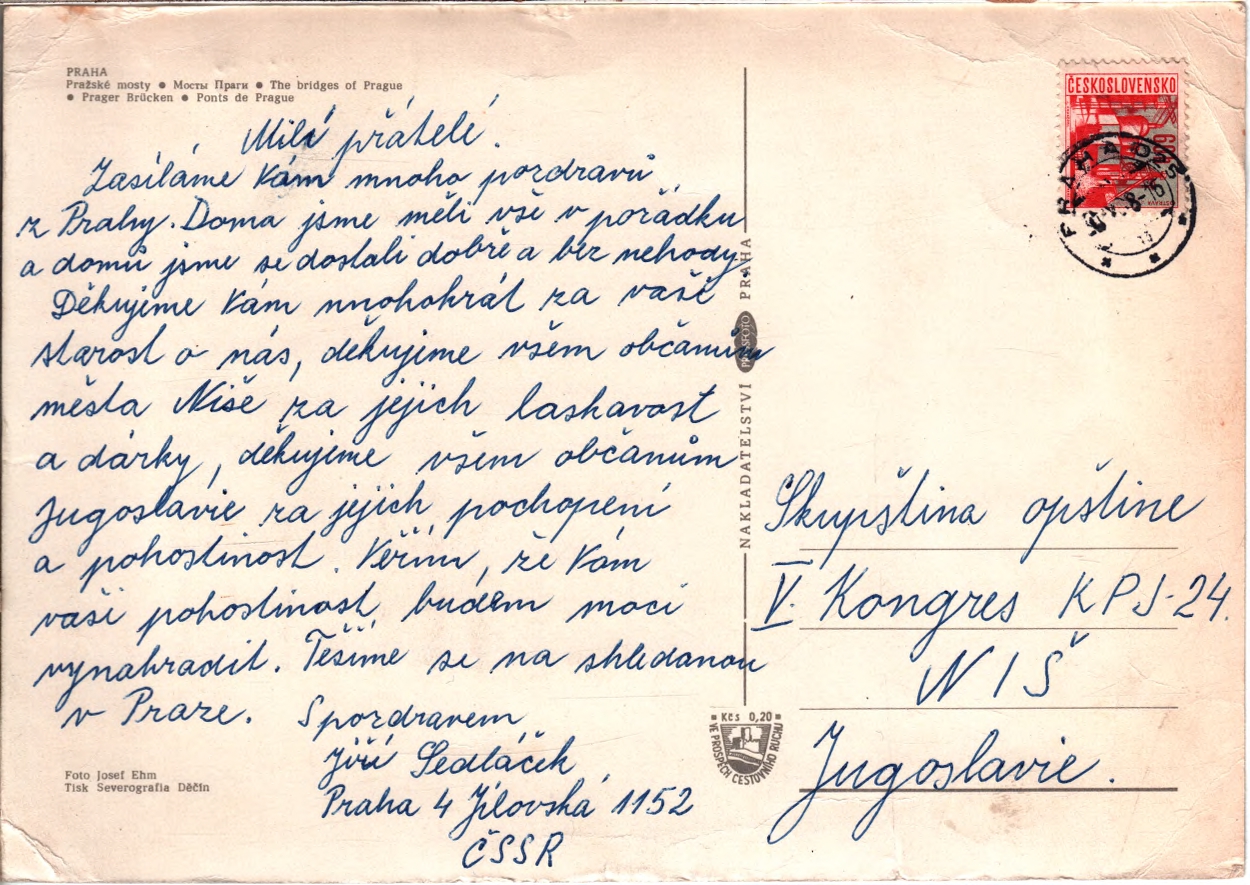 PRAHA
Pražské mosty ● Мосты Праги ● The bridges of Prague
● Prager Brücken ● Ponts de Prague
Milí přátelé.
Zasíláme Vám mnoho pozdravů
z Prahy. Doma jsme měli vše v pořádku
a domů jsme se dostali dobře a bez nehody.
Děkujeme Vám mnohokrát za vaše
starost o nás, děkujeme všem občanům
města Niše za jejich laskavost
a dárky, děkujeme všem občanům
Jugoslávie za jejich pochopení
a pohostinost. Věřím, že Vám
vaši pohostinost budem moci
vynahradit. Těšíme se na shledanou
v Praze. S pozdravem
Jiří Sedláček
Praha 4 Jílovská 1152
ČSSR
Foto Josef Ehm
Tisk Severografia Děčín
NAKLADATELSTVÍ PRESSFOTO PRAHA
Kčs 0,20
VE PROSPĚCH CESTOVNÍHO RUCHU
ČESKOSLOVENSKO
60
OSTRAVA
PRAHA 025
Skupština opštine
V. Kongres KPJ-24.
NIŠ
Jugoslavie.